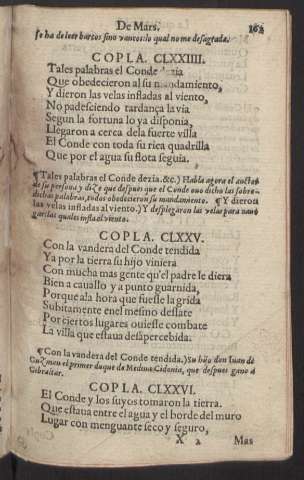 De Mars. 162
se ha de leer hartos sino vantos: lo qual no me desagrada.
COPLA. CLXXIIII.
Tales palabras el Conde dezia
Que obedecieron al su mandamiento,
Y dieron las velas infladas al viento,
No padesciendo tardança la via
Segun la fortuna lo ya disponia,
Llegaron a cerca dela fuerte villa
El Conde con toda su rica quadrilla
Que por el agua su flota seguia.
¶Tales palabras el Conde dezia. &c.) Habla agora el auctor
de su persona y dize que despues que el Conde ouo dicho las sobre-
dichas palabras, todos obedecieron su mandamiento. ¶Y dieron
las velas infladas al viento.) Y desplegaron las velas para naue
gar las quales inflò el viento.
COPLA. CLXXV.
Con la vandera del Conde tendida
Ya por la tierra su hijo viniera
Con mucha mas gente qu'el padre le diera
Bien a cauallo y a punto guarnida,
Porque ala hora que fuesse la grida
Subitamente enel mesmo dessate
Por ciertos lugares ouiesse combate
La villa que estaua desapercebida.
¶Con la vandera del Conde tendida.) Su hijo don Iuan de
Guzman el primer duque de Medina Cidonia, que despues ganò a
Gibraltar.
COPLA. CLXXVI.
El Conde y los suyos tomaron la tierra.
Que estaua entre el agua y el borde del muro
Lugar con menguante seco y seguro,
X 2 Mas